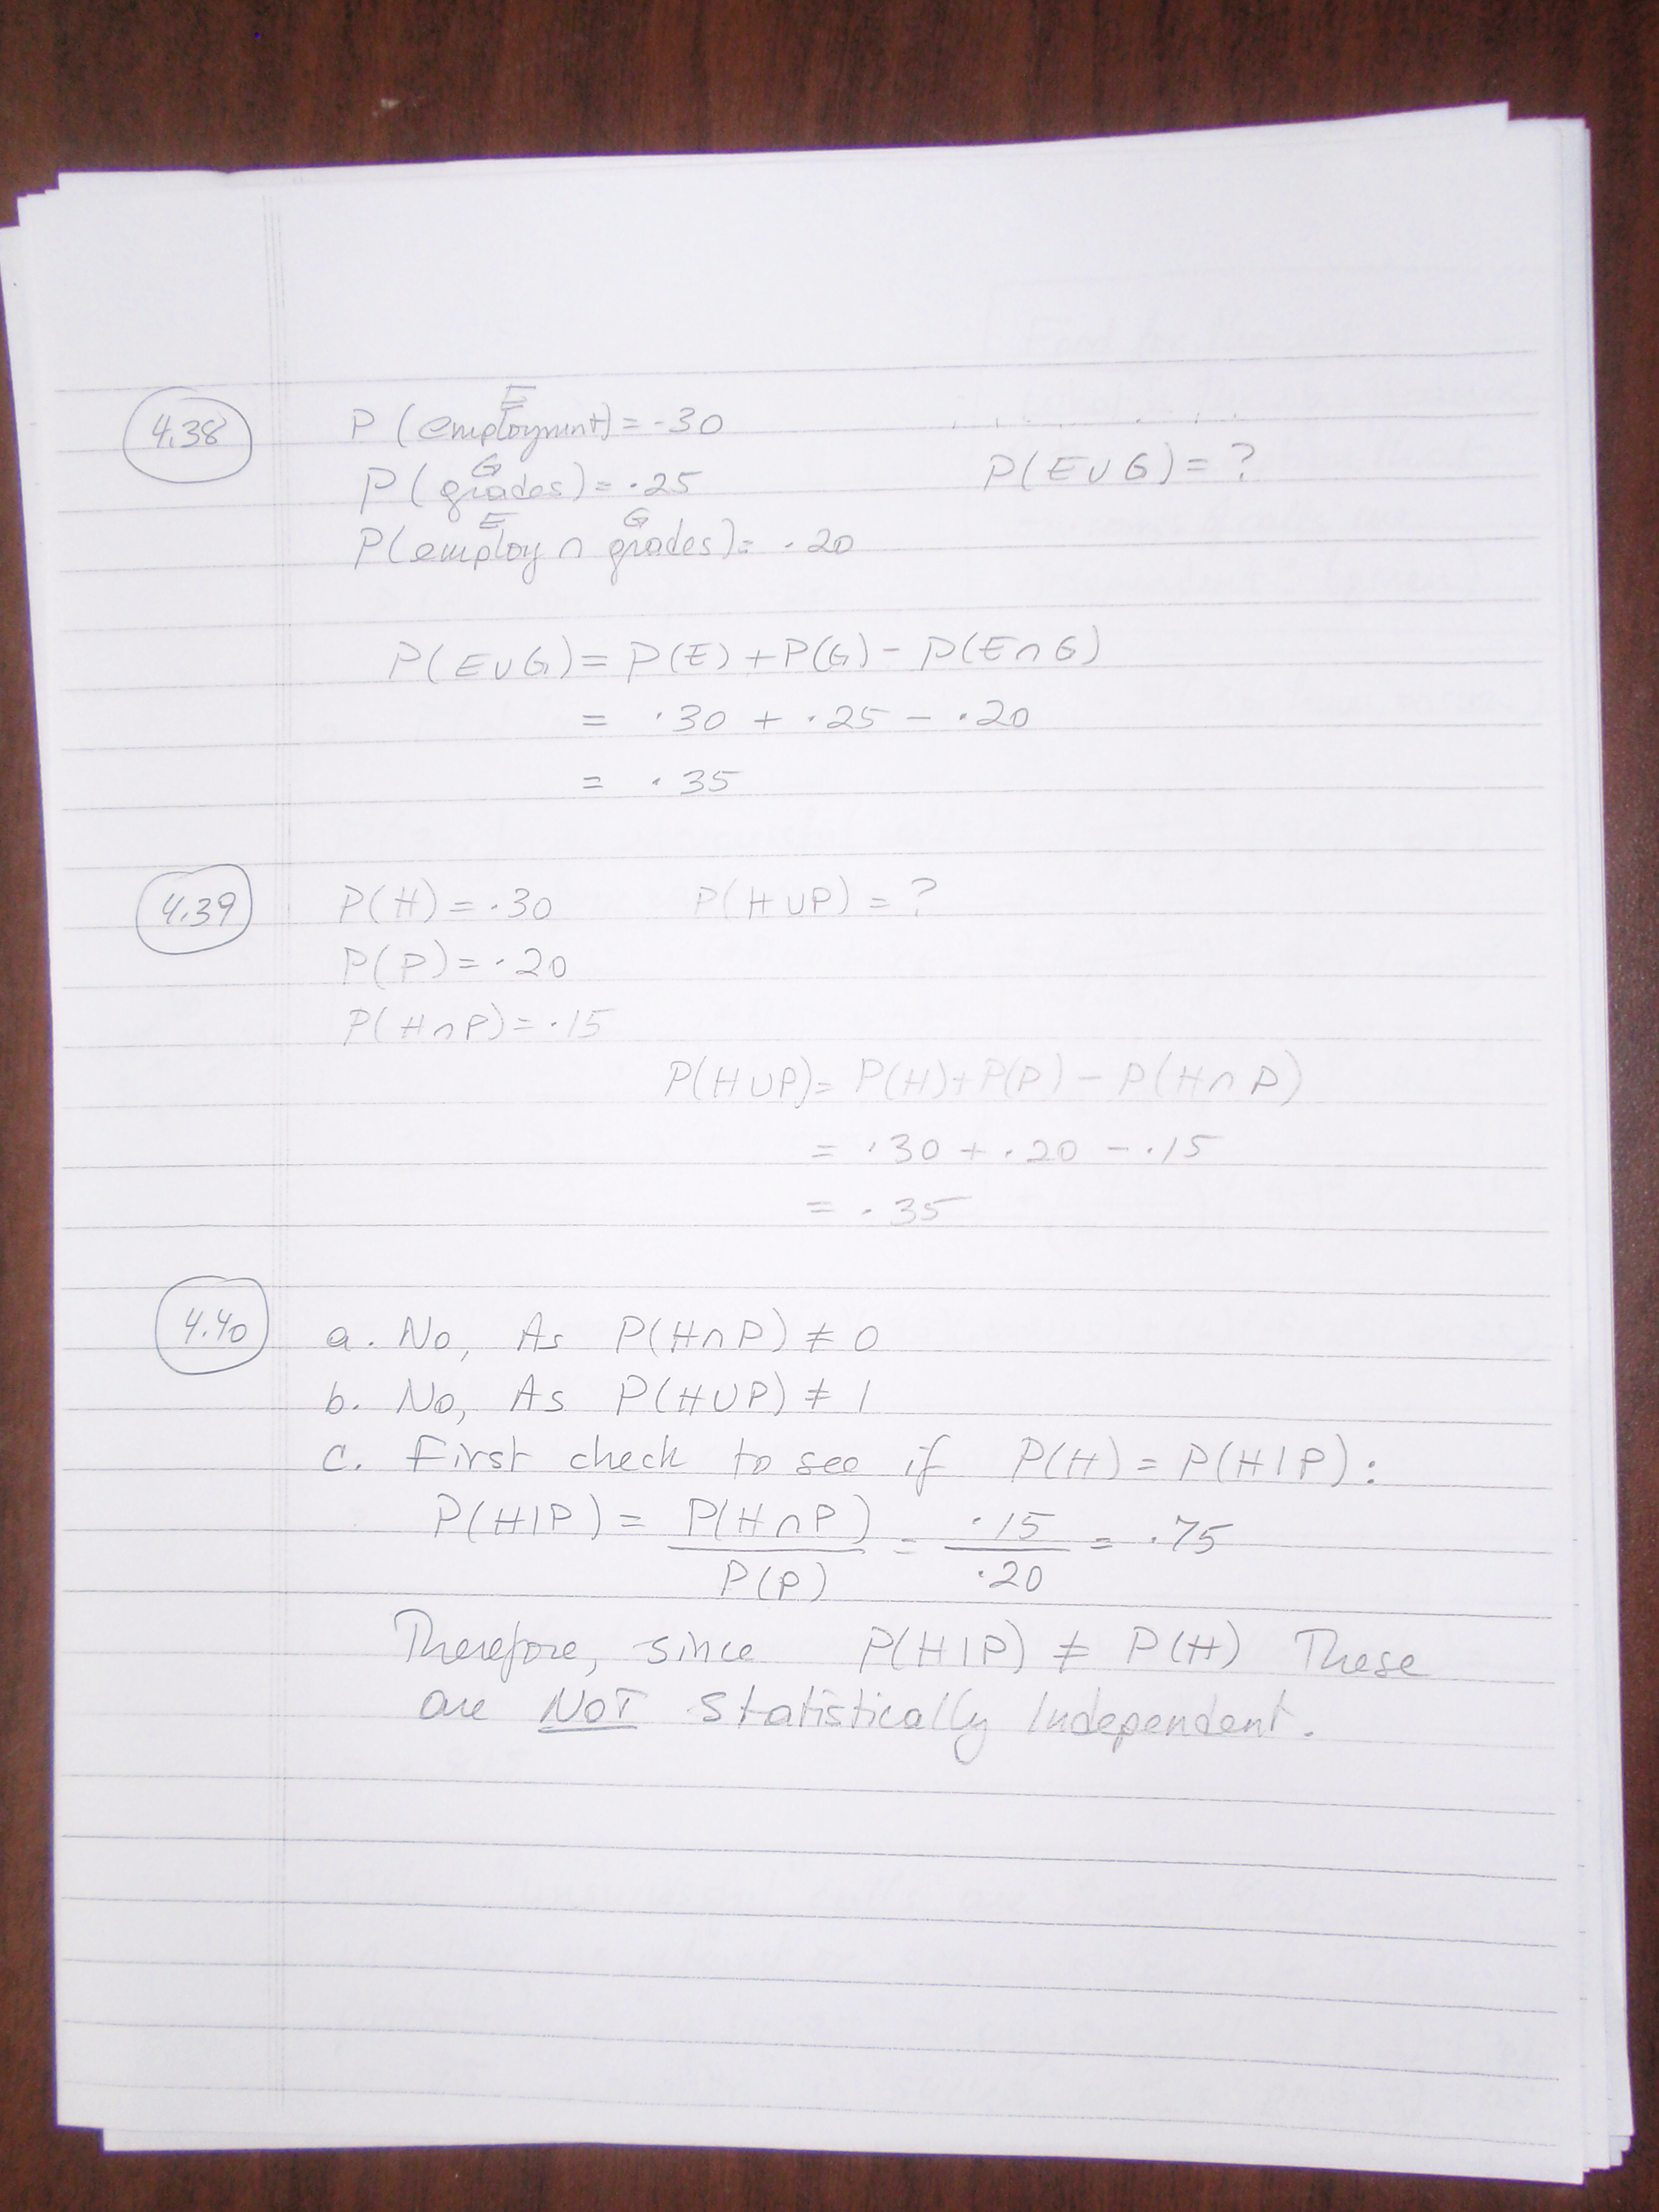 4.38
E
P(employment) = .30
G
P(grades) = .25
P(E∪G) = ?
E G
P(employ ∩ grades) = .20
P(E∪G) = P(E) + P(G) - P(E∩G)
= .30 + .25 - .20
= .35
4.39 P(H) = .30 P(H∪P) = ?
P(P) = .20
P(H∩P) = .15
P(H∪P) = P(H) + P(P) - P(H∩P)
= .30 + .20 - .15
= .35
4.40 a. No, As P(H∩P) ≠ 0
b. No, As P(H∪P) ≠ 1
c. First check to see if P(H) = P(H|P):
P(H|P) = P(H∩P) / P(P) = .15 / .20 = .75
Therefore, since P(H|P) ≠ P(H) These
are NOT Statistically Independent.